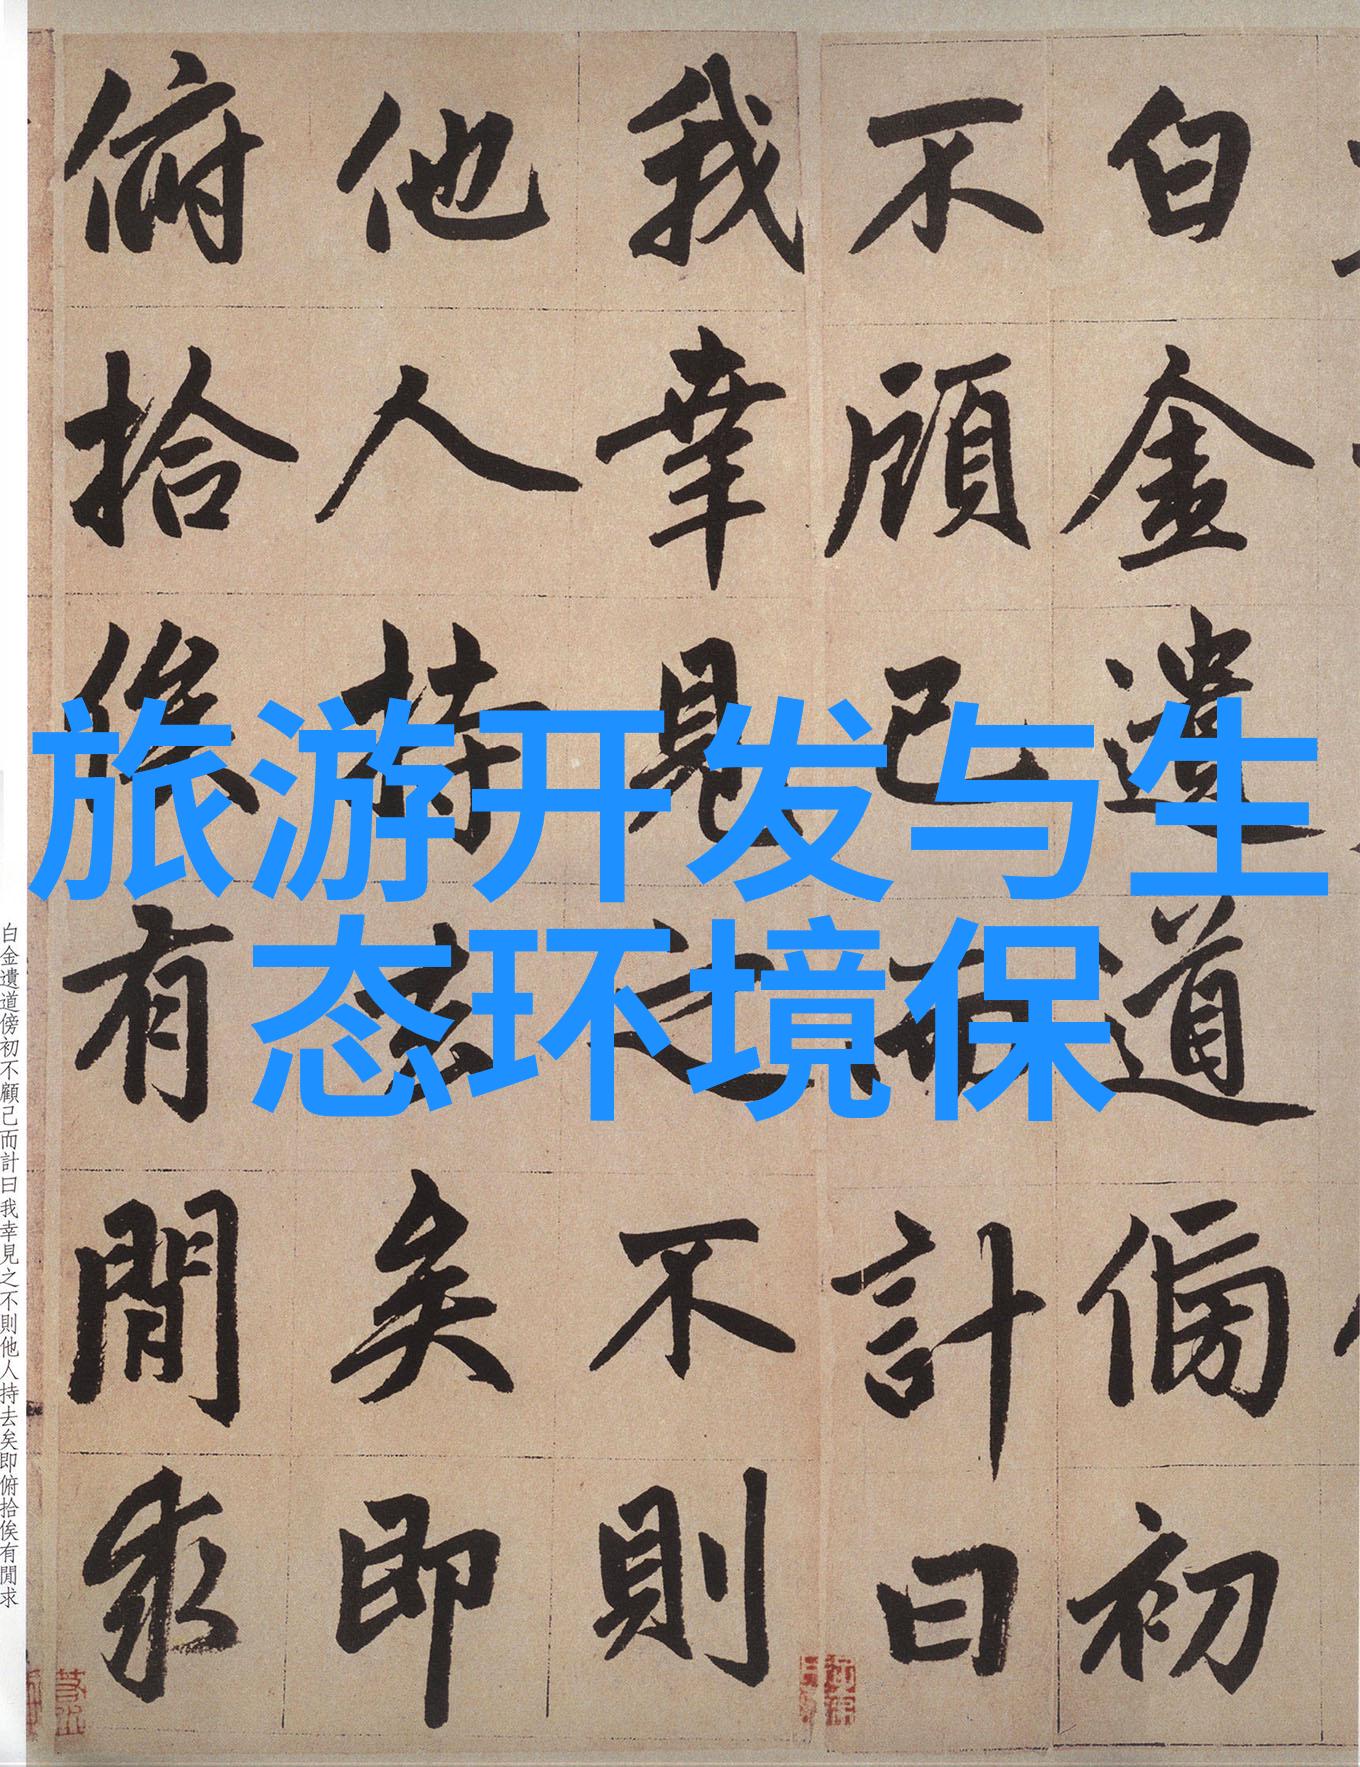 白金遺道傍初
不顧己而計曰
我幸見之不則
他人持去矣即
俯拾俟有閒求
旅游开发与生
态环境保
白金遺道傍初不顧己而計曰我幸見之不則他人持去矣即俯拾俟有閒求